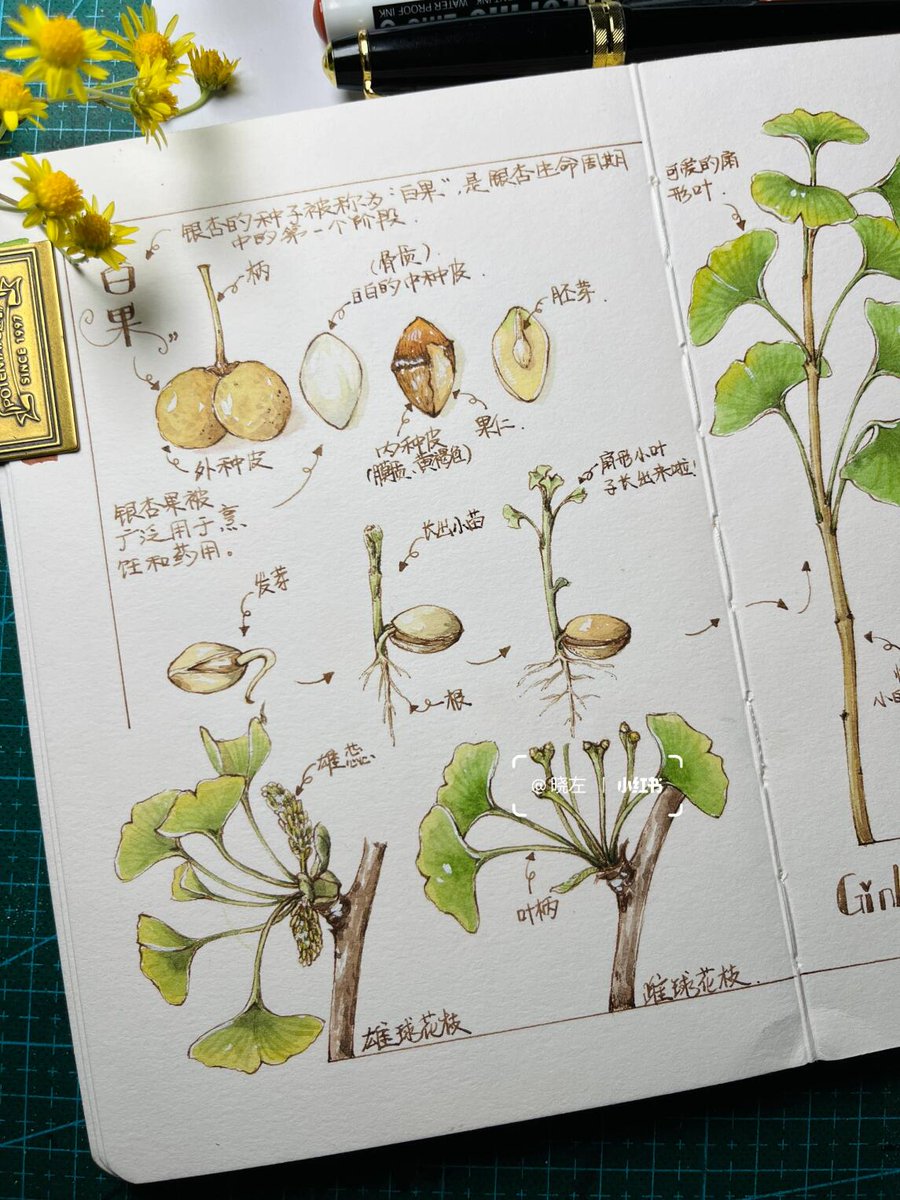 WATER PROOF INK
银杏的种子被称为“白果”,是银杏生命周期
中的第一个阶段.
白
果
柄
(骨质)
白的中种皮.
胚芽.
外种皮
内种皮
(膜质、黄褐色)
果仁.
银杏果被
广泛用于烹
饪和药用。
发芽
长出小苗
扇形小叶
子长出来啦!
根
雄蕊
@晓左 | 小红书
叶柄
雄球花枝
雌球花枝.
可爱的扇
形叶
SINCE 1997